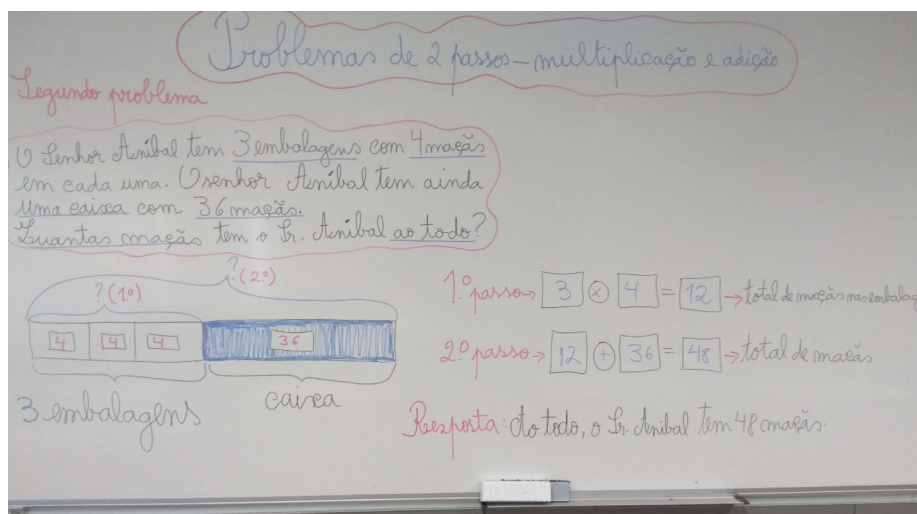 Problemas de 2 passos - multiplicação e adição
Segundo problema
O Senhor Aníbal tem 3 embalagens com 4 maçãs
em cada uma. O senhor Aníbal tem ainda
uma caixa com 36 maçãs.
Quantas maçãs tem o Sr. Aníbal ao todo?
? (2º)
? (1º)
4 4 4 36
3 embalagens
caixa
1.º passo → 3 × 4 = 12 → total de maçãs nas embalag
2.º passo → 12 + 36 = 48 → total de maçãs
Resposta: Ao todo, o Sr. Aníbal tem 48 maçãs.